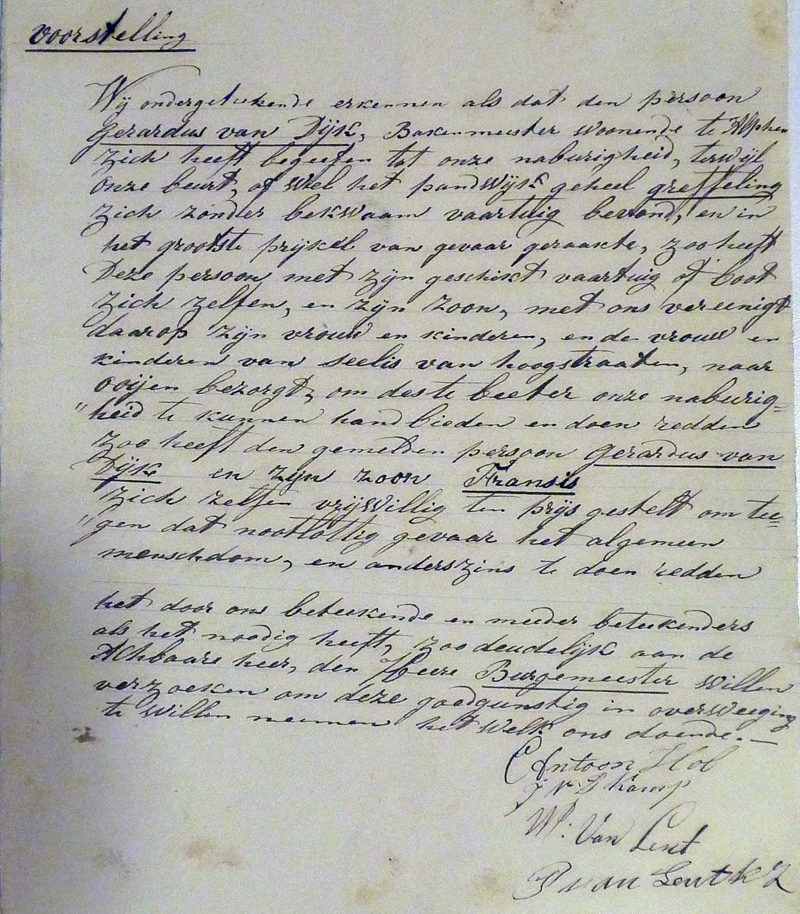 voorstelling
Wij ondergetekende erkennen als dat den persoon
Gerardus van Dijk, Bakenmeester woonende te Alphen
zich heeft begeefen tot onze naburigheid, terwijl
onze beurt, of wel het pandwijk geheel greffeling
zich zonder bekwaam vaartuig bevond, en in
het grootste prijkel van gevaar geraakte, zoo heeft
Deze persoon met zijn geschikt vaartuig of boot
zich zelfen, en zijn zoon, met ons vereenigt
daarop zijn vrouw en kinderen, en de vrouw en
kinderen van Seelis van hoogstraaten, naar
ooijen bezorgt, om des te beeter onze naburig=
"heid te kunnen handbieden en doen redden
zoo heeft den gemelden persoon Gerardus van
Dijk en zijn zoon Fransis
zich zelfen vrijwillig ten prijs gestelt om tee=
"gen dat nootlottig gevaar het algemeen
menschdom, en anderszins te doen redden
het door ons beteekende en meeder beteekenders
als het noodig heeft, zoo deudelijk aan de
Achbaare heer, den Heere Burgemeester willen
verzoeken om deze goedgunstig in overweeging
te willen neemen het welk ons doende.—
Antoon Hol
Kamp
W: Van Lent
P van Lent kz